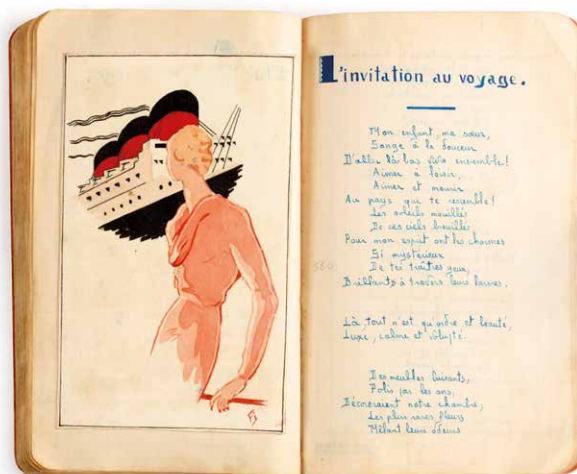 L'invitation au voyage.
Mon enfant, ma sœur,
Songe à la douceur
D'aller là-bas vivre ensemble!
Aimer à loisir,
Aimer et mourir
Au pays qui te ressemble!
Les soleils mouillés
De ces ciels brouillés
Pour mon esprit ont les charmes
Si mystérieux
De tes traîtres yeux,
Brillants à travers leurs larmes.
Là, tout n'est qu'ordre et beauté,
Luxe, calme et volupté.
Des meubles luisants,
Polis par les ans,
Décoreraient notre chambre,
Les plus rares fleurs
Mêlant leurs odeurs